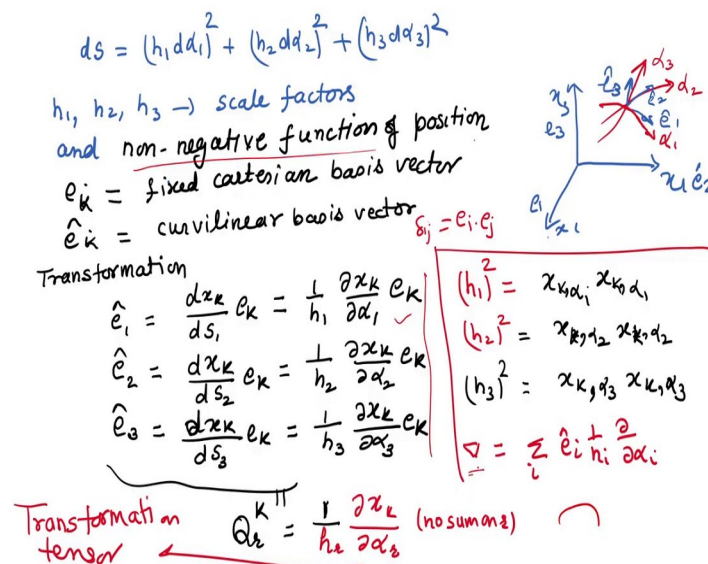 ds = (h₁dα₁)² + (h₂dα₂)² + (h₃dα₃)²
h₁, h₂, h₃ → scale factors
and non-negative function of position
e_k = fixed cartesian basis vector
ê_k = curvilinear basis vector
δ_ij = e_i . e_j
Transformation
ê₁ = dx_k/ds₁ e_k = 1/h₁ ∂x_k/∂α₁ e_k ✓
ê₂ = dx_k/ds₂ e_k = 1/h₂ ∂x_k/∂α₂ e_k
ê₃ = dx_k/ds₃ e_k = 1/h₃ ∂x_k/∂α₃ e_k
(h₁)² = x_k,α₁ x_k,α₁
(h₂)² = x_k,α₂ x_k,α₂
(h₃)² = x_k,α₃ x_k,α₃
∇ = Σ_i ê_i 1/h_i ∂/∂α_i
Transformation tensor
Q_r^k = 1/h_r ∂x_k/∂α_r (no sum on r)
α₃
ê₃
α₂
e₂
e₁
α₁
x₃
e₃
e₁
x₁
e₂